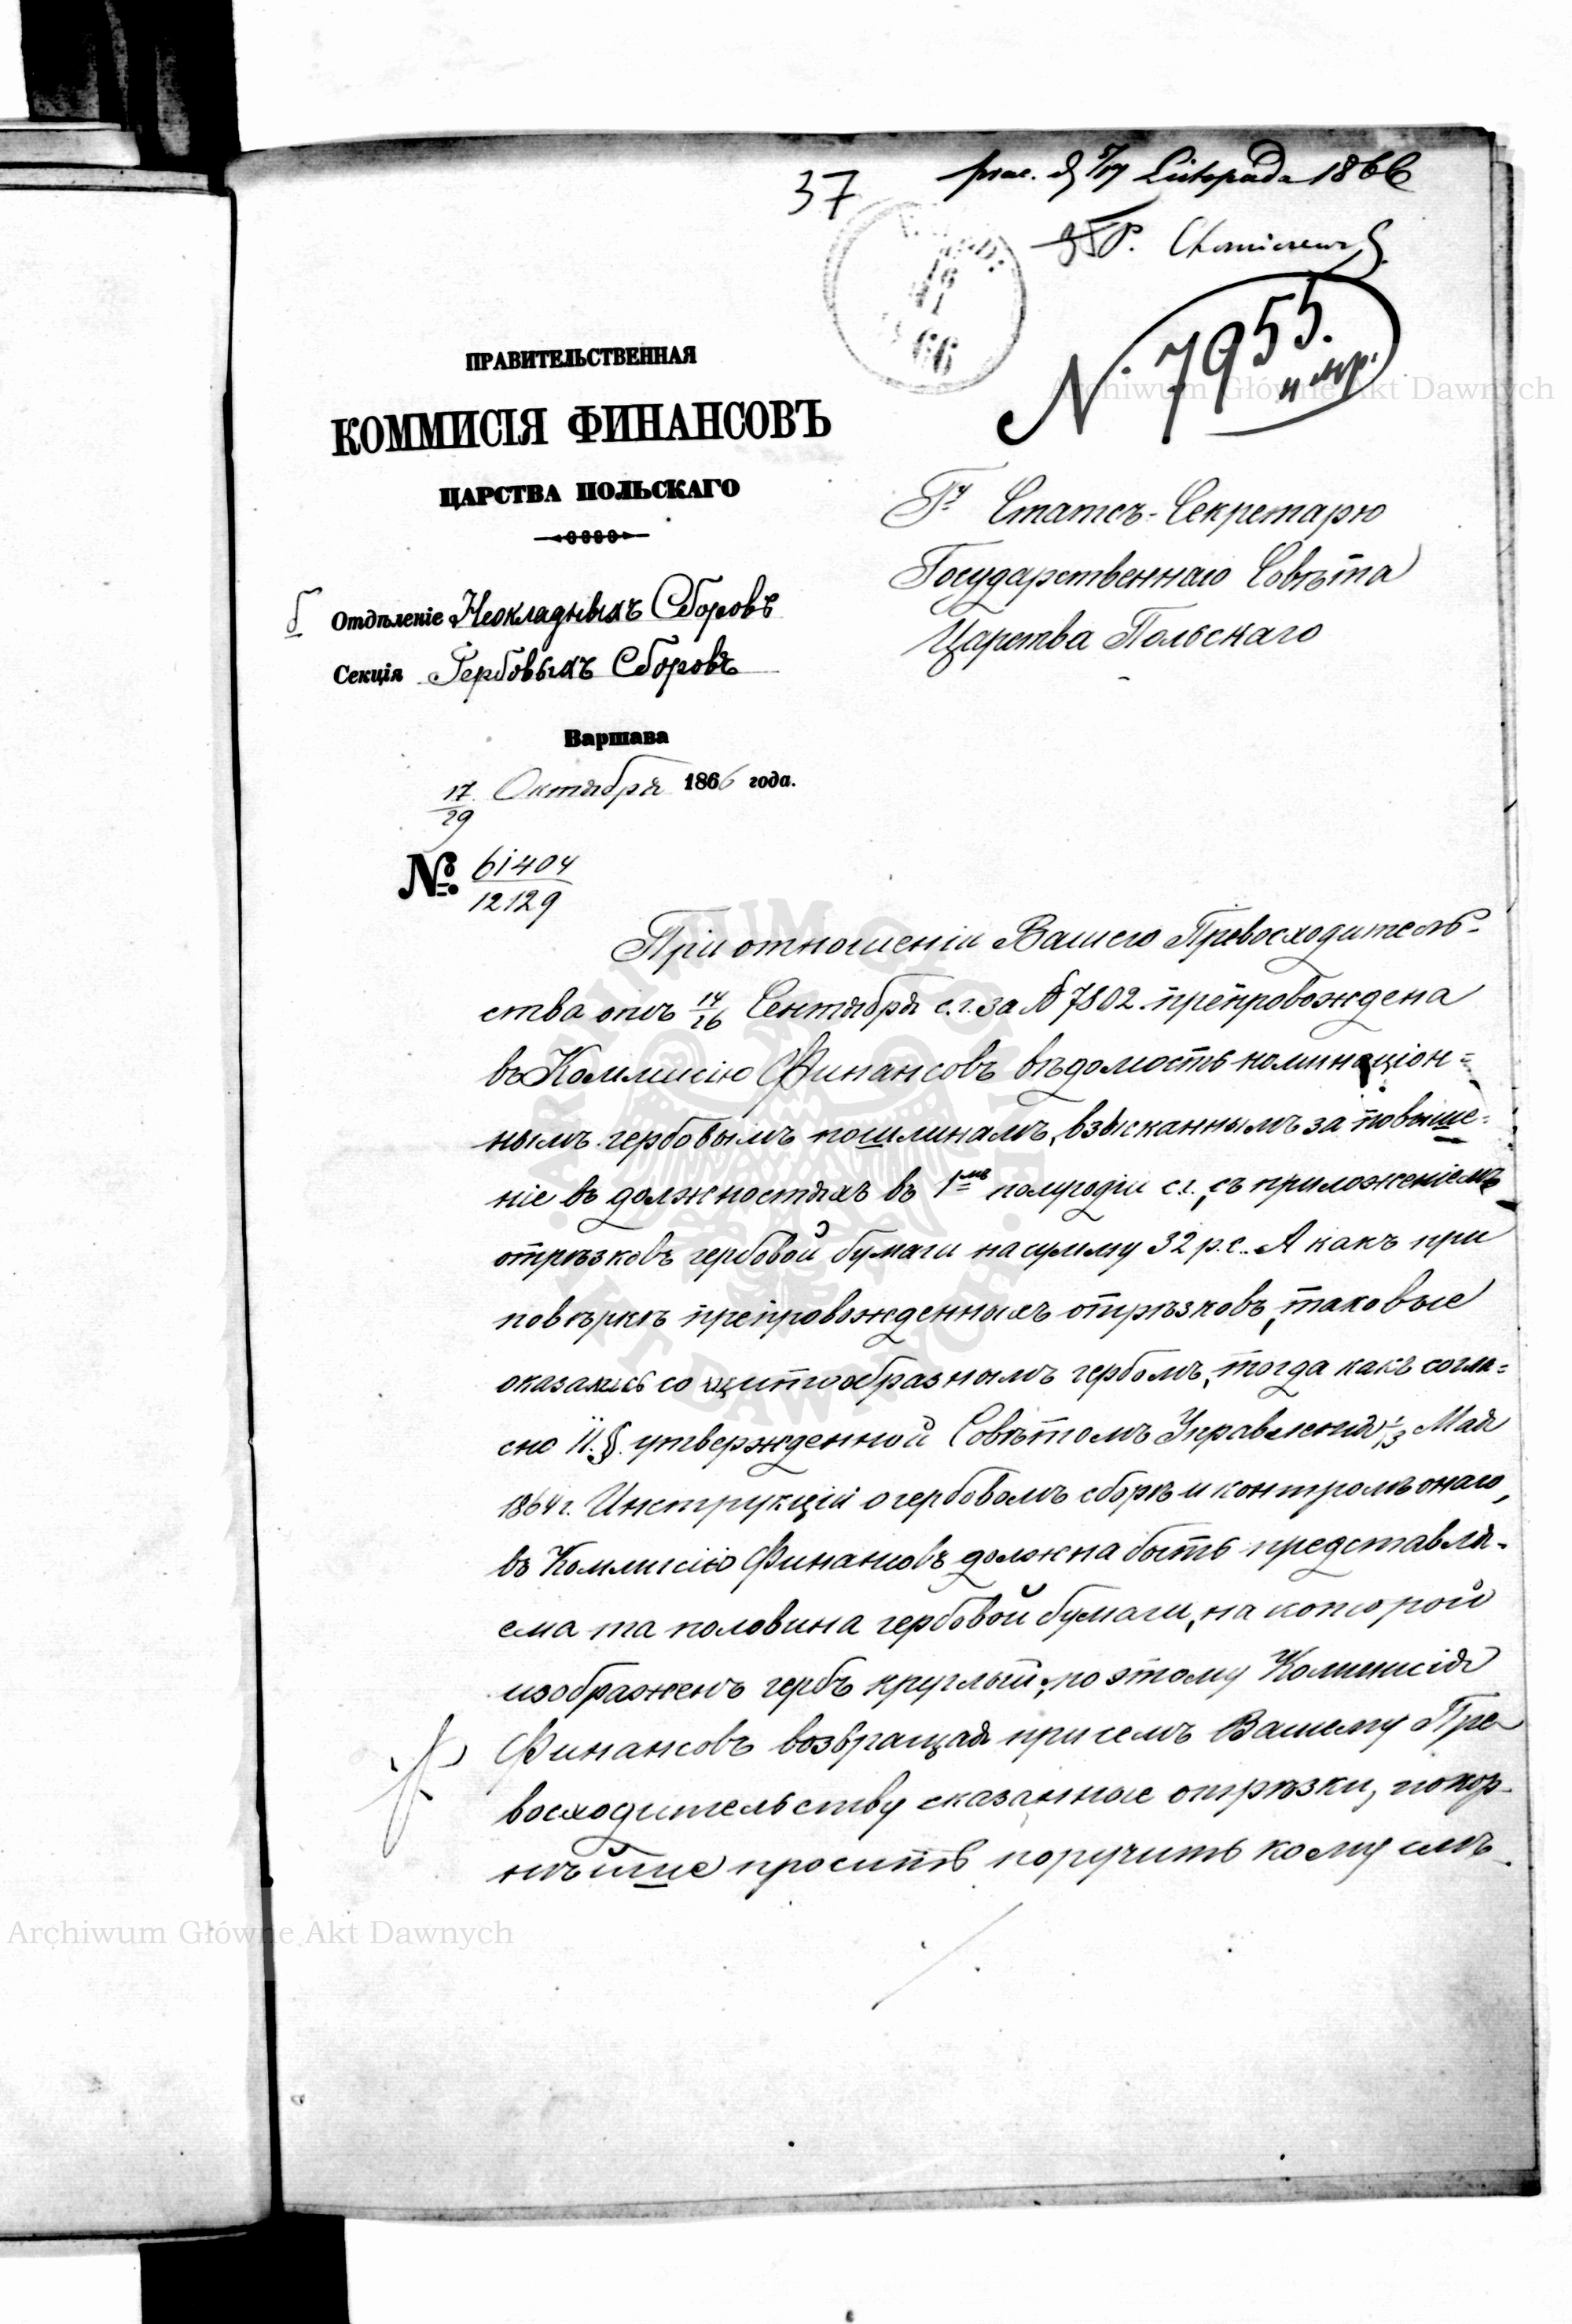 37
prac. d. 5/17 Listopada 1866
N 7955.
ПРАВИТЕЛЬСТВЕННАЯ
КОММИСІЯ ФИНАНСОВЪ
ЦАРСТВА ПОЛЬСКАГО
Отдѣленіе Неокладныхъ Сборовъ
Секція Гербовыхъ Сборовъ
Варшава
17/29 Октября 1866 года.
№ 61404/12129
Гу Статсъ-Секретарю
Государственнаго Совѣта
Царства Польскаго
При отношеніи Вашего Превосходитель-
ства отъ 14/26 Сентября с.г. за № 7802 препровождена
въ Коммисію Финансовъ вѣдомость номинаціон=
нымъ гербовымъ пошлинамъ, взысканнымъ за повыше=
ніе въ должностяхъ въ 1мъ полугодіи с.г., съ приложеніемъ
отрѣзковъ гербовой бумаги на сумму 32 р.с.. А какъ при
повѣркѣ препровожденныхъ отрѣзковъ, таковые
оказались со щитообразнымъ гербомъ, тогда какъ согла=
сно 11. §. утвержденной Совѣтомъ Управленія 1/13 Мая
1864 г. Инструкціи о гербовомъ сборѣ и контролѣ онаго,
въ Коммисію Финансовъ должна быть представля-
ема та половина гербовой бумаги, на которой
изображенъ гербъ круглый; по этому Коммисія
Финансовъ возвращая при семъ Вашему Пре
восходительству сказанные отрѣзки, покор-
нѣйше проситъ поручить кому слѣ-
Archiwum Główne Akt Dawnych
Archiwum Główne Akt Dawnych
ARCHIWUM GŁÓWNE AKT DAWNYCH